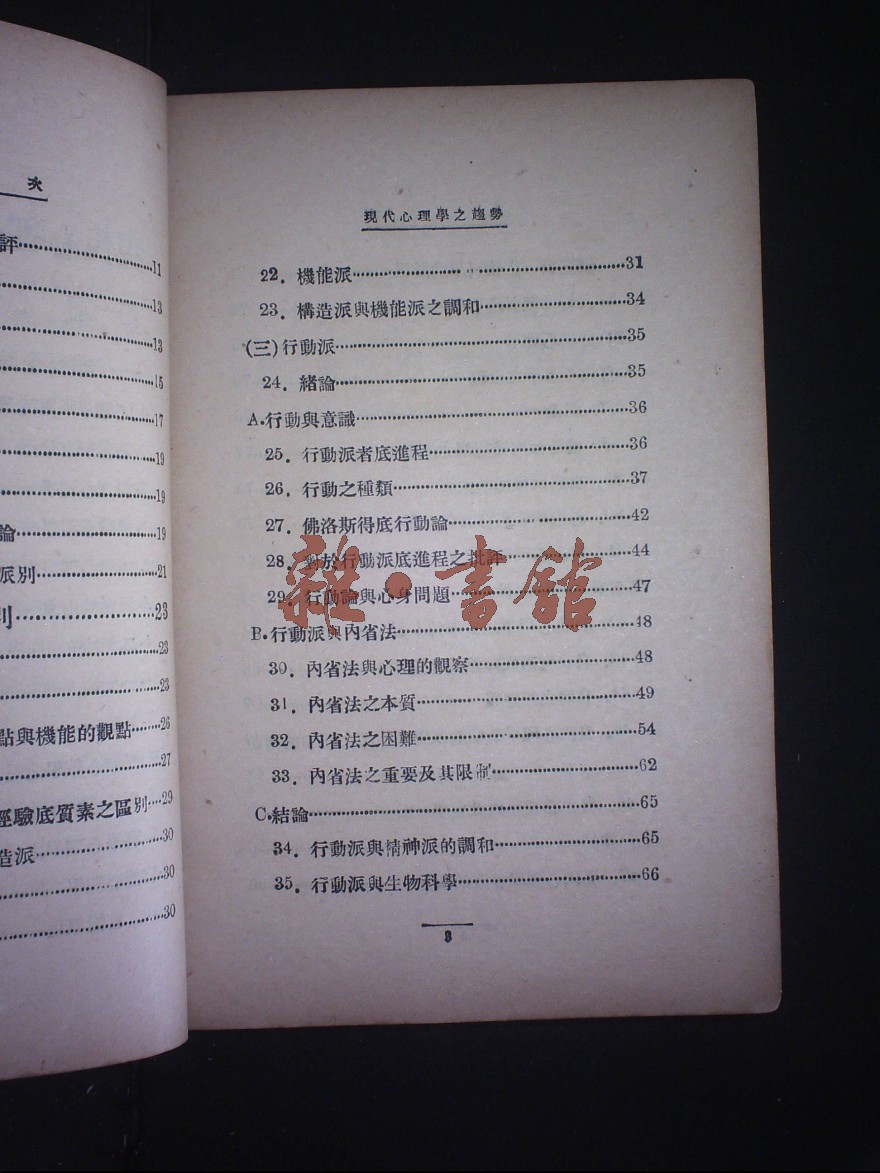 次
評……11
……13
……13
……15
……17
……19
……19
論……19
派別……21
別……23
……23
……23
點與機能的觀點……26
……27
經驗底質素之區別……29
造派……30
……30
……30
現代心理學之趨勢
22. 機能派……31
23. 構造派與機能派之調和……34
(三)行動派……35
24. 緒論……35
A.行動與意識……36
25. 行動派者底進程……36
26. 行動之種類……37
27. 佛洛斯得底行動論……42
28. 對於行動派底進程之批評……44
29. 行動論與心身問題……47
B.行動派與內省法……48
30. 內省法與心理的觀察……48
31. 內省法之本質……49
32. 內省法之困難……54
33. 內省法之重要及其限制……62
C.結論……65
34. 行動派與精神派的調和……65
35. 行動派與生物科學……66
3
雜·書館